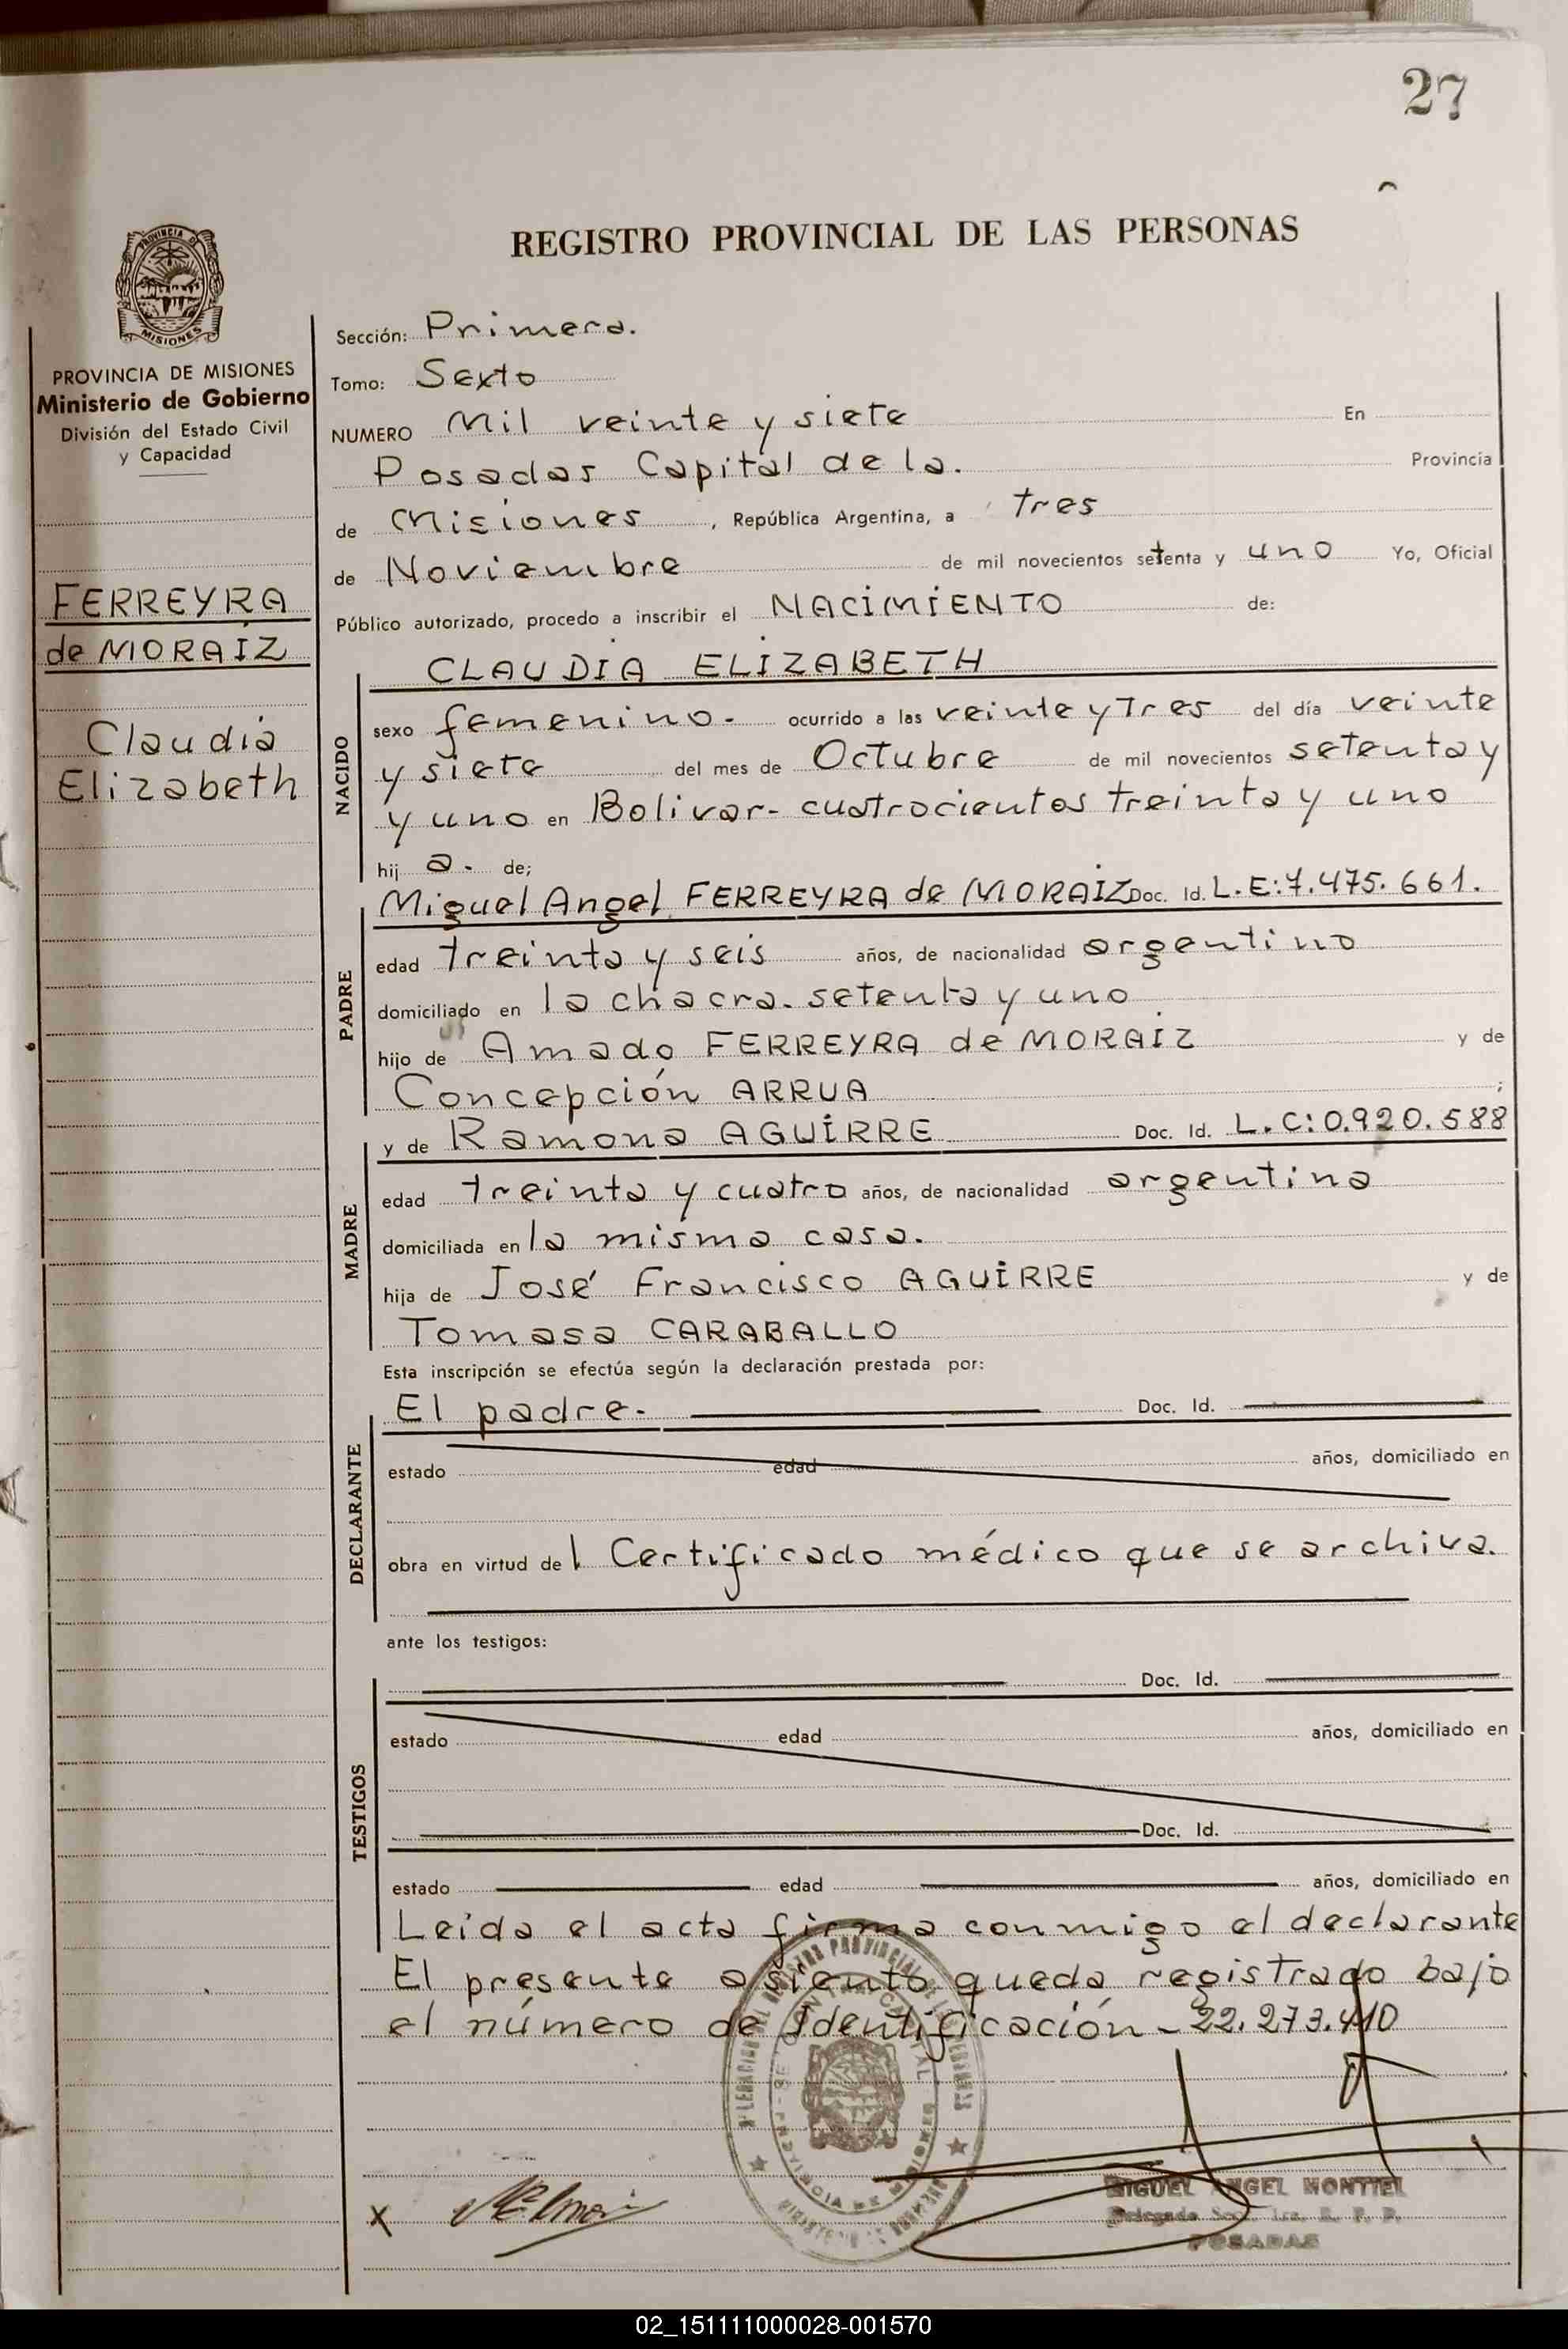 27
REGISTRO PROVINCIAL DE LAS PERSONAS
PROVINCIA DE MISIONES
Ministerio de Gobierno
División del Estado Civil
y Capacidad
FERREYRA
de MORAIZ
Claudia
Elizabeth
Sección: Primera.
Tomo: Sexto
NUMERO Mil veinte y siete En
Posadas Capital de la. Provincia
de Misiones, República Argentina, a tres
de Noviembre de mil novecientos setenta y uno Yo, Oficial
Público autorizado, procedo a inscribir el NACIMIENTO de:
NACIDO
CLAUDIA ELIZABETH
sexo femenino.- ocurrido a las veinte y Tres del día veinte
y siete del mes de Octubre de mil novecientos setenta y
y uno en Bolivar- cuatrocientos treinta y uno
hij a. de;
PADRE
Miguel Angel FERREYRA de MORAIZ Doc. Id. L.E:7.475.661.
edad treinta y seis años, de nacionalidad argentino
domiciliado en la chacra. setenta y uno
hijo de Amado FERREYRA de MORAIZ y de
Concepción ARRUA ;
MADRE
y de Ramona AGUIRRE Doc. Id. L.C:0.920.588
edad treinta y cuatro años, de nacionalidad argentina
domiciliada en la misma casa.
hija de José Francisco AGUIRRE y de
Tomasa CARABALLO
Esta inscripción se efectúa según la declaración prestada por:
DECLARANTE
El padre.- Doc. Id.
estado edad años, domiciliado en
obra en virtud del Certificado médico que se archiva.
ante los testigos:
TESTIGOS
Doc. Id.
estado edad años, domiciliado en
Doc. Id.
estado edad años, domiciliado en
Leida el acta firma conmigo el declarante
El presente asiento queda registrado bajo
el número de Identificación - 22.273.410
X
MIGUEL ANGEL MONTIEL
Delegado Sec. 1ra. R. P. P.
POSADAS
02_151111000028-001570